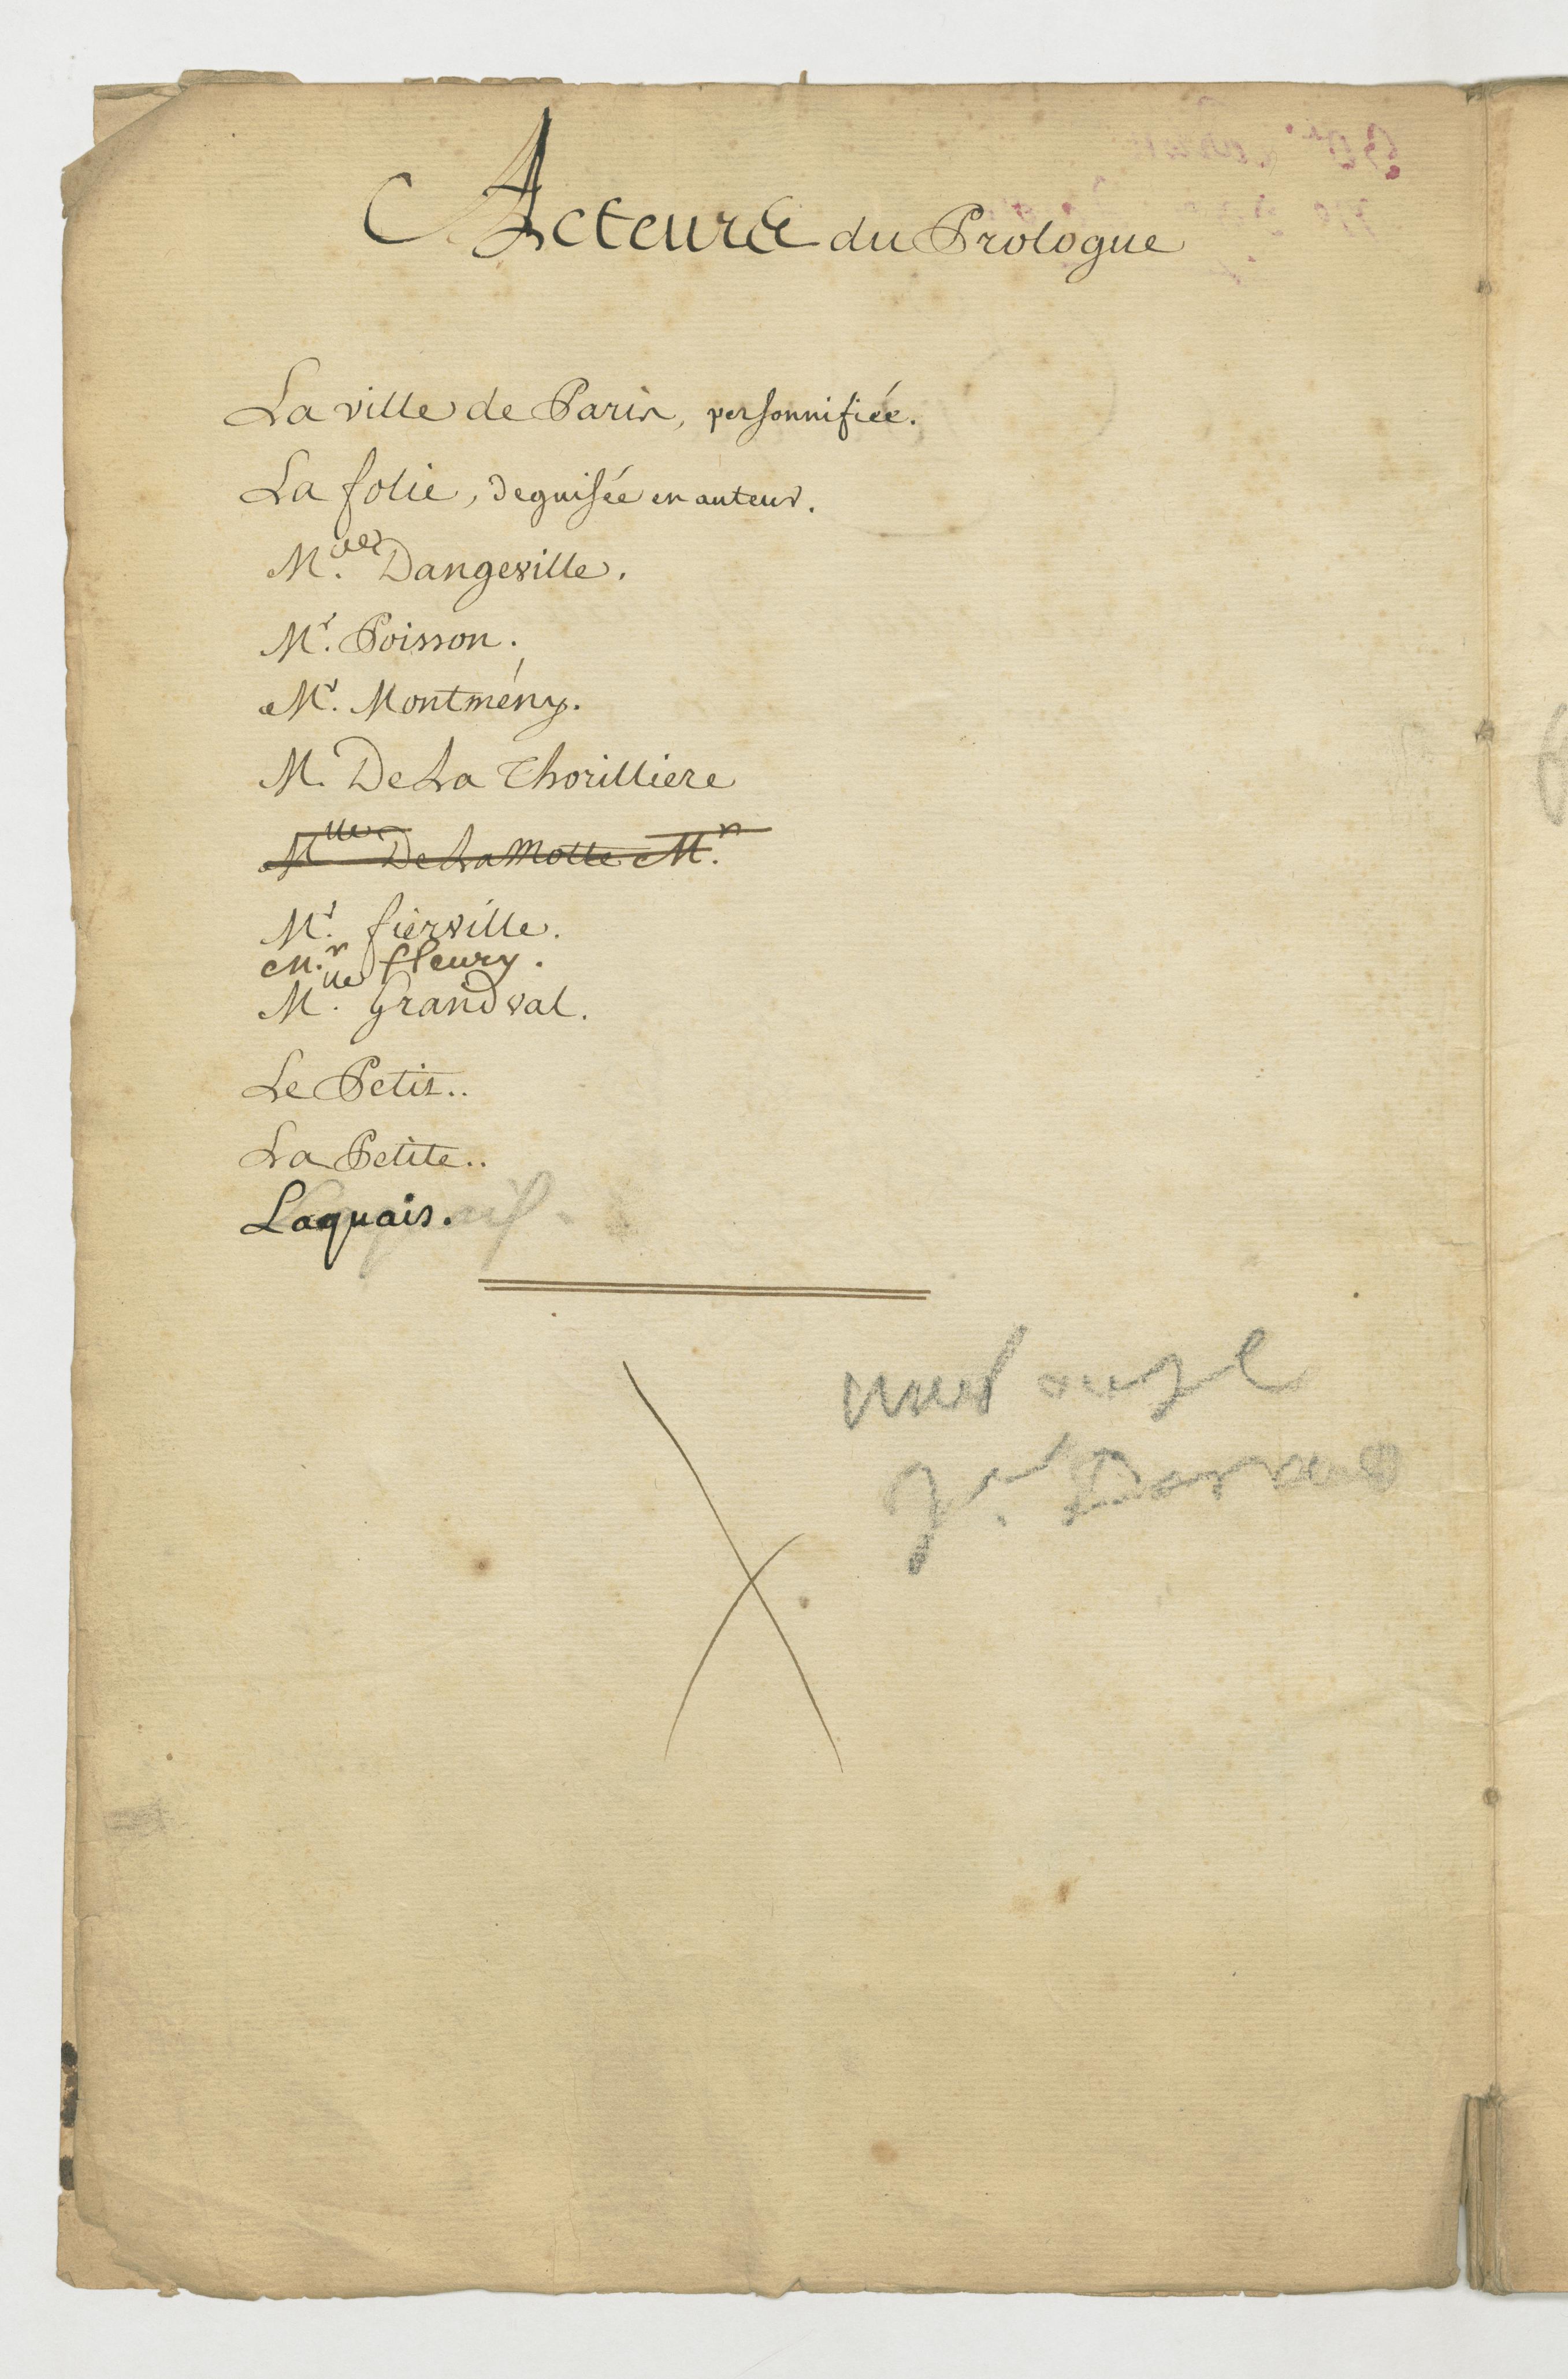 Acteurs du Prologue
La ville de Paris, personnifiée.
La folie, deguisée en auteur.
M.lle Dangeville.
Mr. Poisson.
Mr. Montmény.
M. De La Thorilliere
Mlle De La Motte Mr.
Mr. fierville.
M.r fleury.
Mlle. Grandval.
Le Petit..
La Petite..
Laquais.